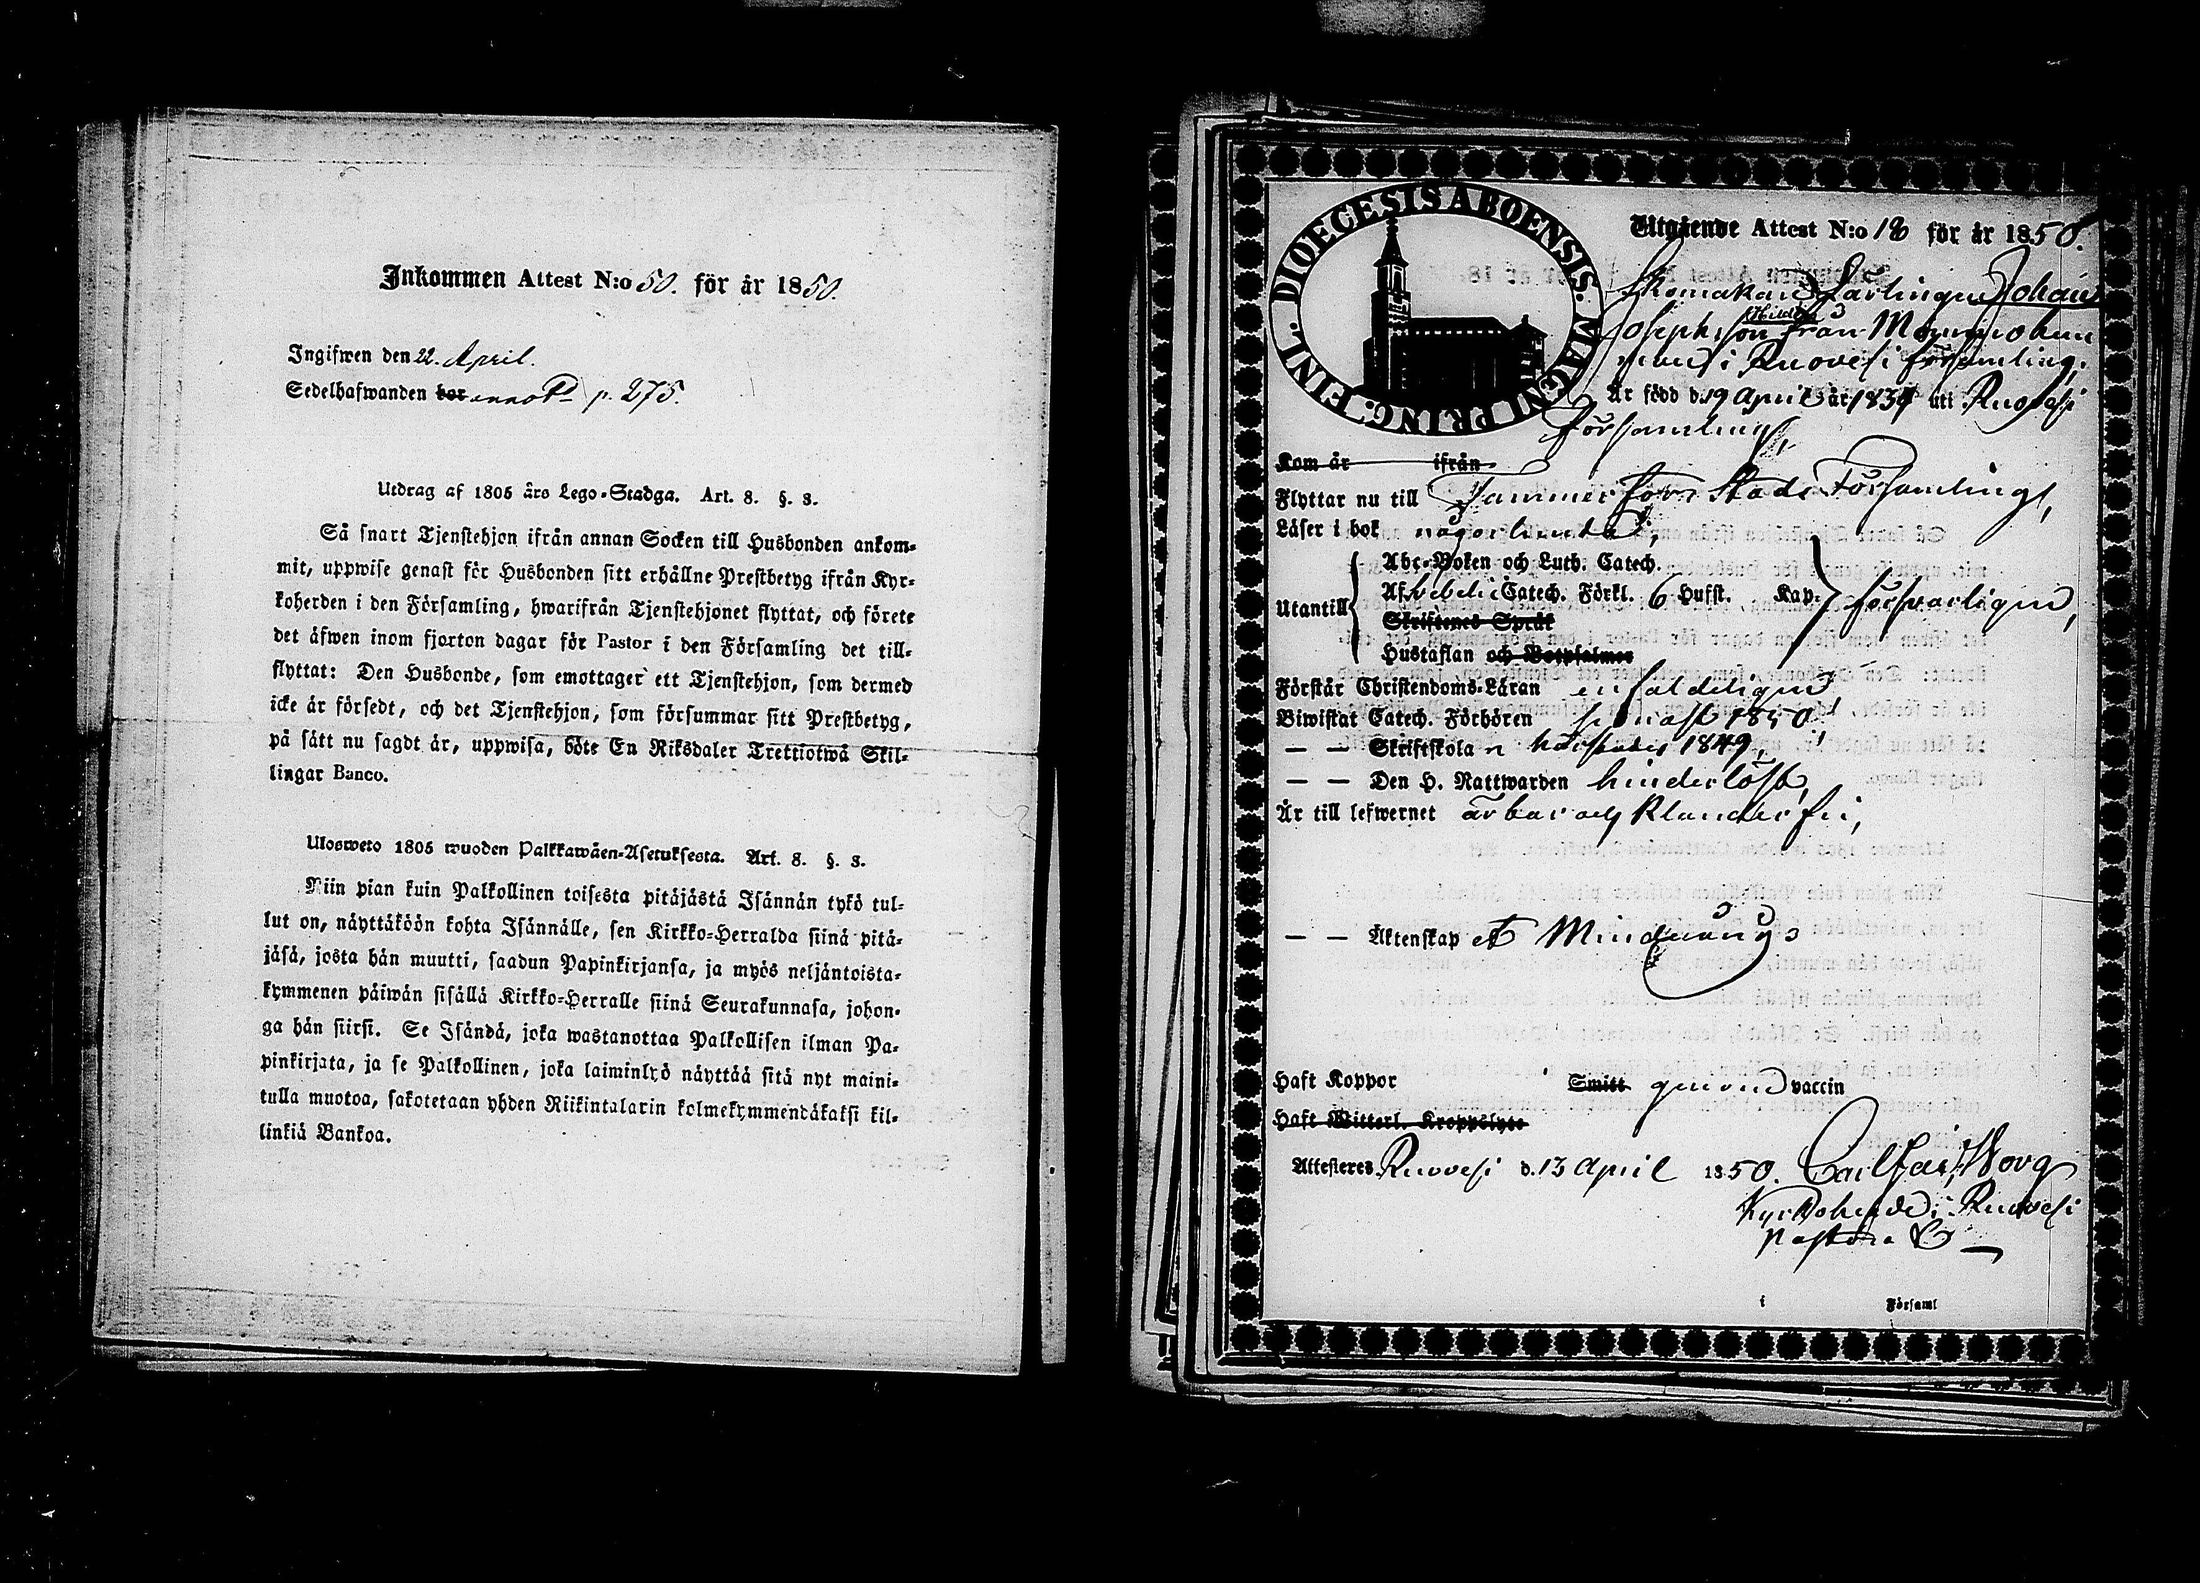 Inkommen Attest N:o 50. för år 1850.
Ingifwen den 22. April.
Sedelhafwanden bor anno Pd p. 275.
Utdrag af 1805 års Lego-Stadga. Art. 8. §. 3.
Så snart Tjenstehjon ifrån annan Socken till Husbonden ankom-
mit, uppwise genast för Husbonden sitt erhållne Prestbetyg ifrån Kyr-
koherden i den Församling, hwarifrån Tjenstehjonet flyttat, och förete
det äfwen inom fjorton dagar för Pastor i den Församling det till-
flyttat: Den Husbonde, som emottager ett Tjenstehjon, som dermed
icke är försedt, och det Tjenstehjon, som försummar sitt Prestbetyg,
på sätt nu sagdt är, uppwisa, böte En Riksdaler Trettiotwå Skil-
lingar Banco.
Ulosweto 1805 wuoden Palkkawäen-Asetuksesta. Art. 8. §. 3.
Niin pian kuin Palkollinen toisesta pitäjästä Isännän tykö tul-
lut on, näyttäköön kohta Isännälle, sen Kirkko-Herralda siinä pitä-
jäsä, josta hän muutti, saadun Papinkirjansa, ja myös neljäntoista-
kymmenen päiwän sisällä Kirkko-Herralle siinä Seurakunnasa, johon-
ga hän siirsi. Se Isändä, joka wastanottaa Palkollisen ilman Pa-
pinkirjata, ja se Palkollinen, joka laiminlyö näyttää sitä nyt maini-
tulla muotoa, sakotetaan yhden Riikintalarin kolmekymmendäkaksi kil-
linkiä Bankoa.
DIOECESIS ABOENSIS. MAGNI PRINC. FINL.
Utgående Attest N:o 18 för år 1850.
Skomakare Lärlingen Johan
Josephsson från
i Ruovesi församling,
Är född d. 19 April år 1834 uti Ruovesi
Församling,
Kom år ifrån
Flyttar nu till Tammerfors Stads Församling,
Läser i bok någorlunda,
Utantill Abc-Boken och Luth. Catech.
Af Svebelii Catech. Förkl. 6 Hufst. Kap. försvarligen,
Skriftenes Språk
Hustaflan och Botpsalmer
Förstår Christendoms-Läran enfaldeligen,
Biwistat Catech. Förhören senast 1850,
— — Skriftskolan 1849,
— — Den H. Nattwarden hinderlöst,
Är till lefwernet ärbar och klanderfri,
— — Äktenskap
Haft Koppor Smitt genom vaccin
Haft Witterl. Kroppslyte
Attesteres Ruovesi d. 13 April 1850. Carl
Kyrkoherde i Ruovesi
i Församl